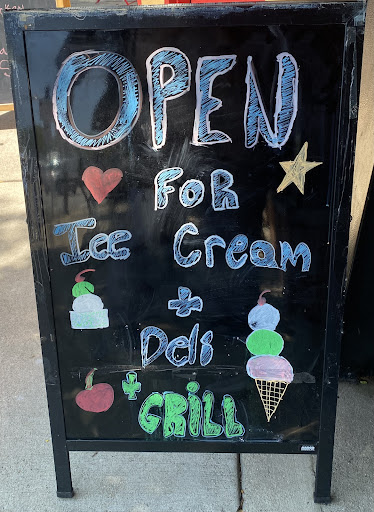 OPEN
FOR
Ice Cream
+
Deli
+ GRILL